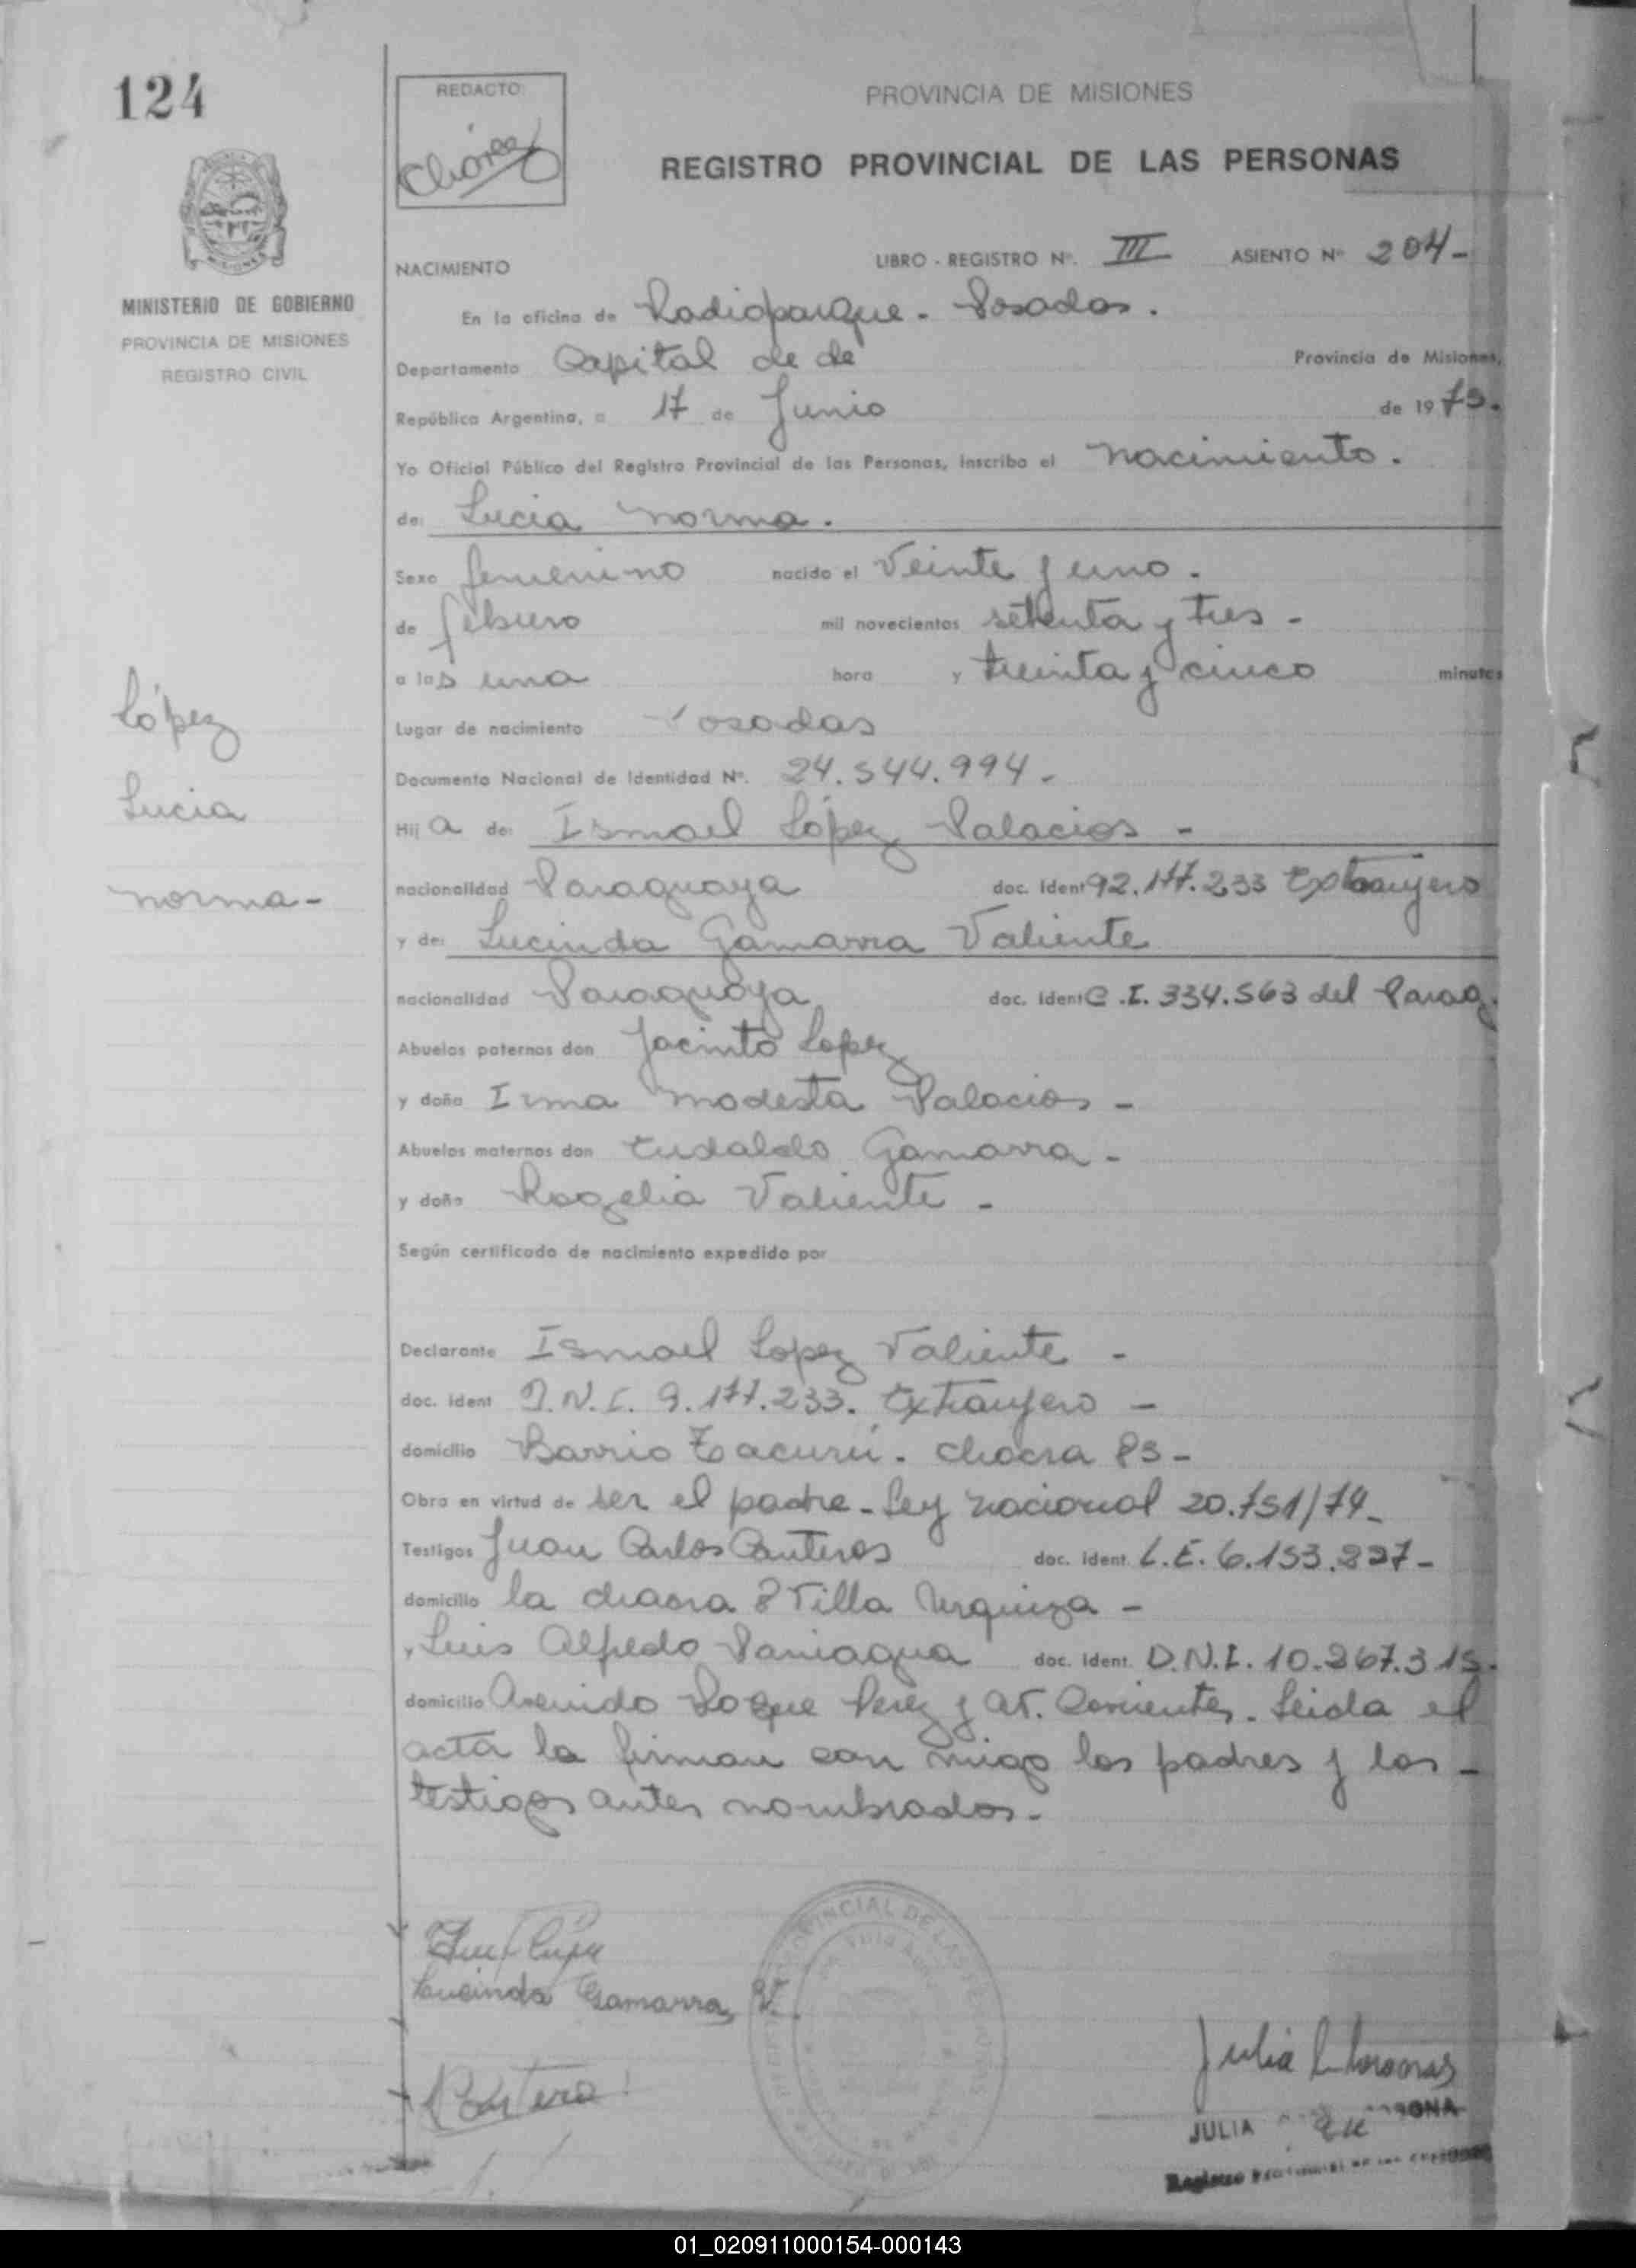 124
REDACTO:
Chávez
PROVINCIA DE MISIONES
REGISTRO PROVINCIAL DE LAS PERSONAS
MISIONES
MINISTERIO DE GOBIERNO
PROVINCIA DE MISIONES
REGISTRO CIVIL
NACIMIENTO LIBRO - REGISTRO Nº. III ASIENTO Nº 204-
En la oficina de Radioparque - Posadas.
Departamento Capital de de Provincia de Misiones,
República Argentina, a 17 de Junio de 1975.
Yo Oficial Público del Registro Provincial de las Personas, inscribo el nacimiento.
de: Lucia norma.
Sexo femenino nacido el Veinte y uno.
de febrero mil novecientos setenta y tres -
a las una hora y treinta y cinco minutos
Lugar de nacimiento Posadas
Documento Nacional de Identidad Nº. 24.544.994-
Hija de: Ismael López Palacios -
nacionalidad Paraguaya doc. Ident 92.177.233 Extranjero
y de: Lucinda Gamarra Valiente
nacionalidad Paraguaya doc. Ident C.I. 334.563 del Parag.
Abuelos paternos don Jacinto Lopez
y doña Irma modesta Palacios -
Abuelos maternos don Eudaldo Gamarra -
y doña Rogelia Valiente -
Según certificado de nacimiento expedido por
Declarante Ismael Lopez Valiente -
doc. ident D.N.I. 9.177.233. Extranjero -
domicilio Barrio Tacurú. chacra 83-
Obra en virtud de ser el padre - Ley nacional 20.751/74-
Testigos Juan Carlos Canteros doc. ident. L.E. 6.153.227-
domicilio la chacra 8 Villa Urquiza -
y Luis Alfredo Paniagua doc. ident. D.N.I. 10.267.315.
domicilio Avenida Roque Perez y av. Corrientes. Leida el
acta la firman con migo los padres y los -
testigos antes nombrados -
López
Lucia
norma-
Lucinda Gamarra V.
PROVINCIAL DE LAS PERSONAS
Cantero
Julia
JULIA
Registro
01_020911000154-000143